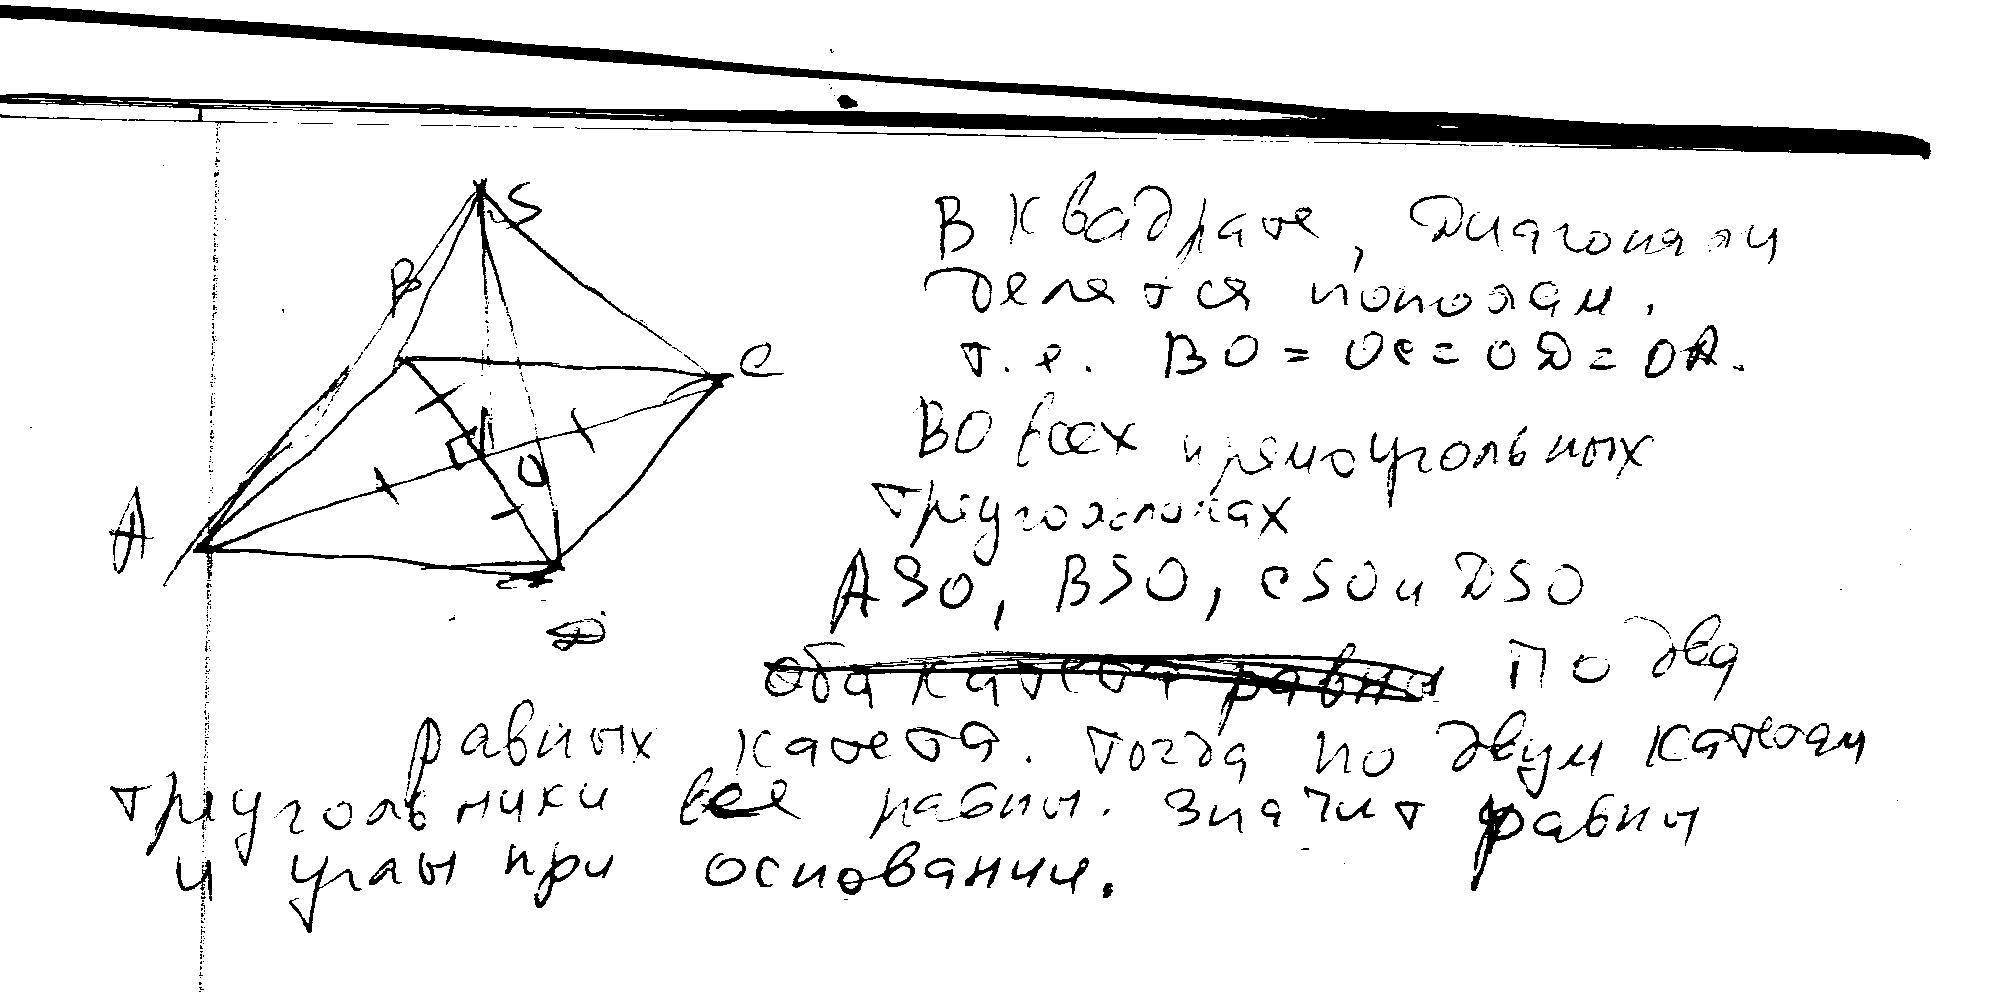 S
B
C
O
A
D
В квадрате, диагонали
делятся пополам.
т.е. BO = OC = OD = OA.
Во всех прямоугольных
треугольниках
ASO, BSO, CSO и DSO
оба катета равны по два
равных катета. Тогда по двум катетам
треугольники все равны. Значит равны
и углы при основании.